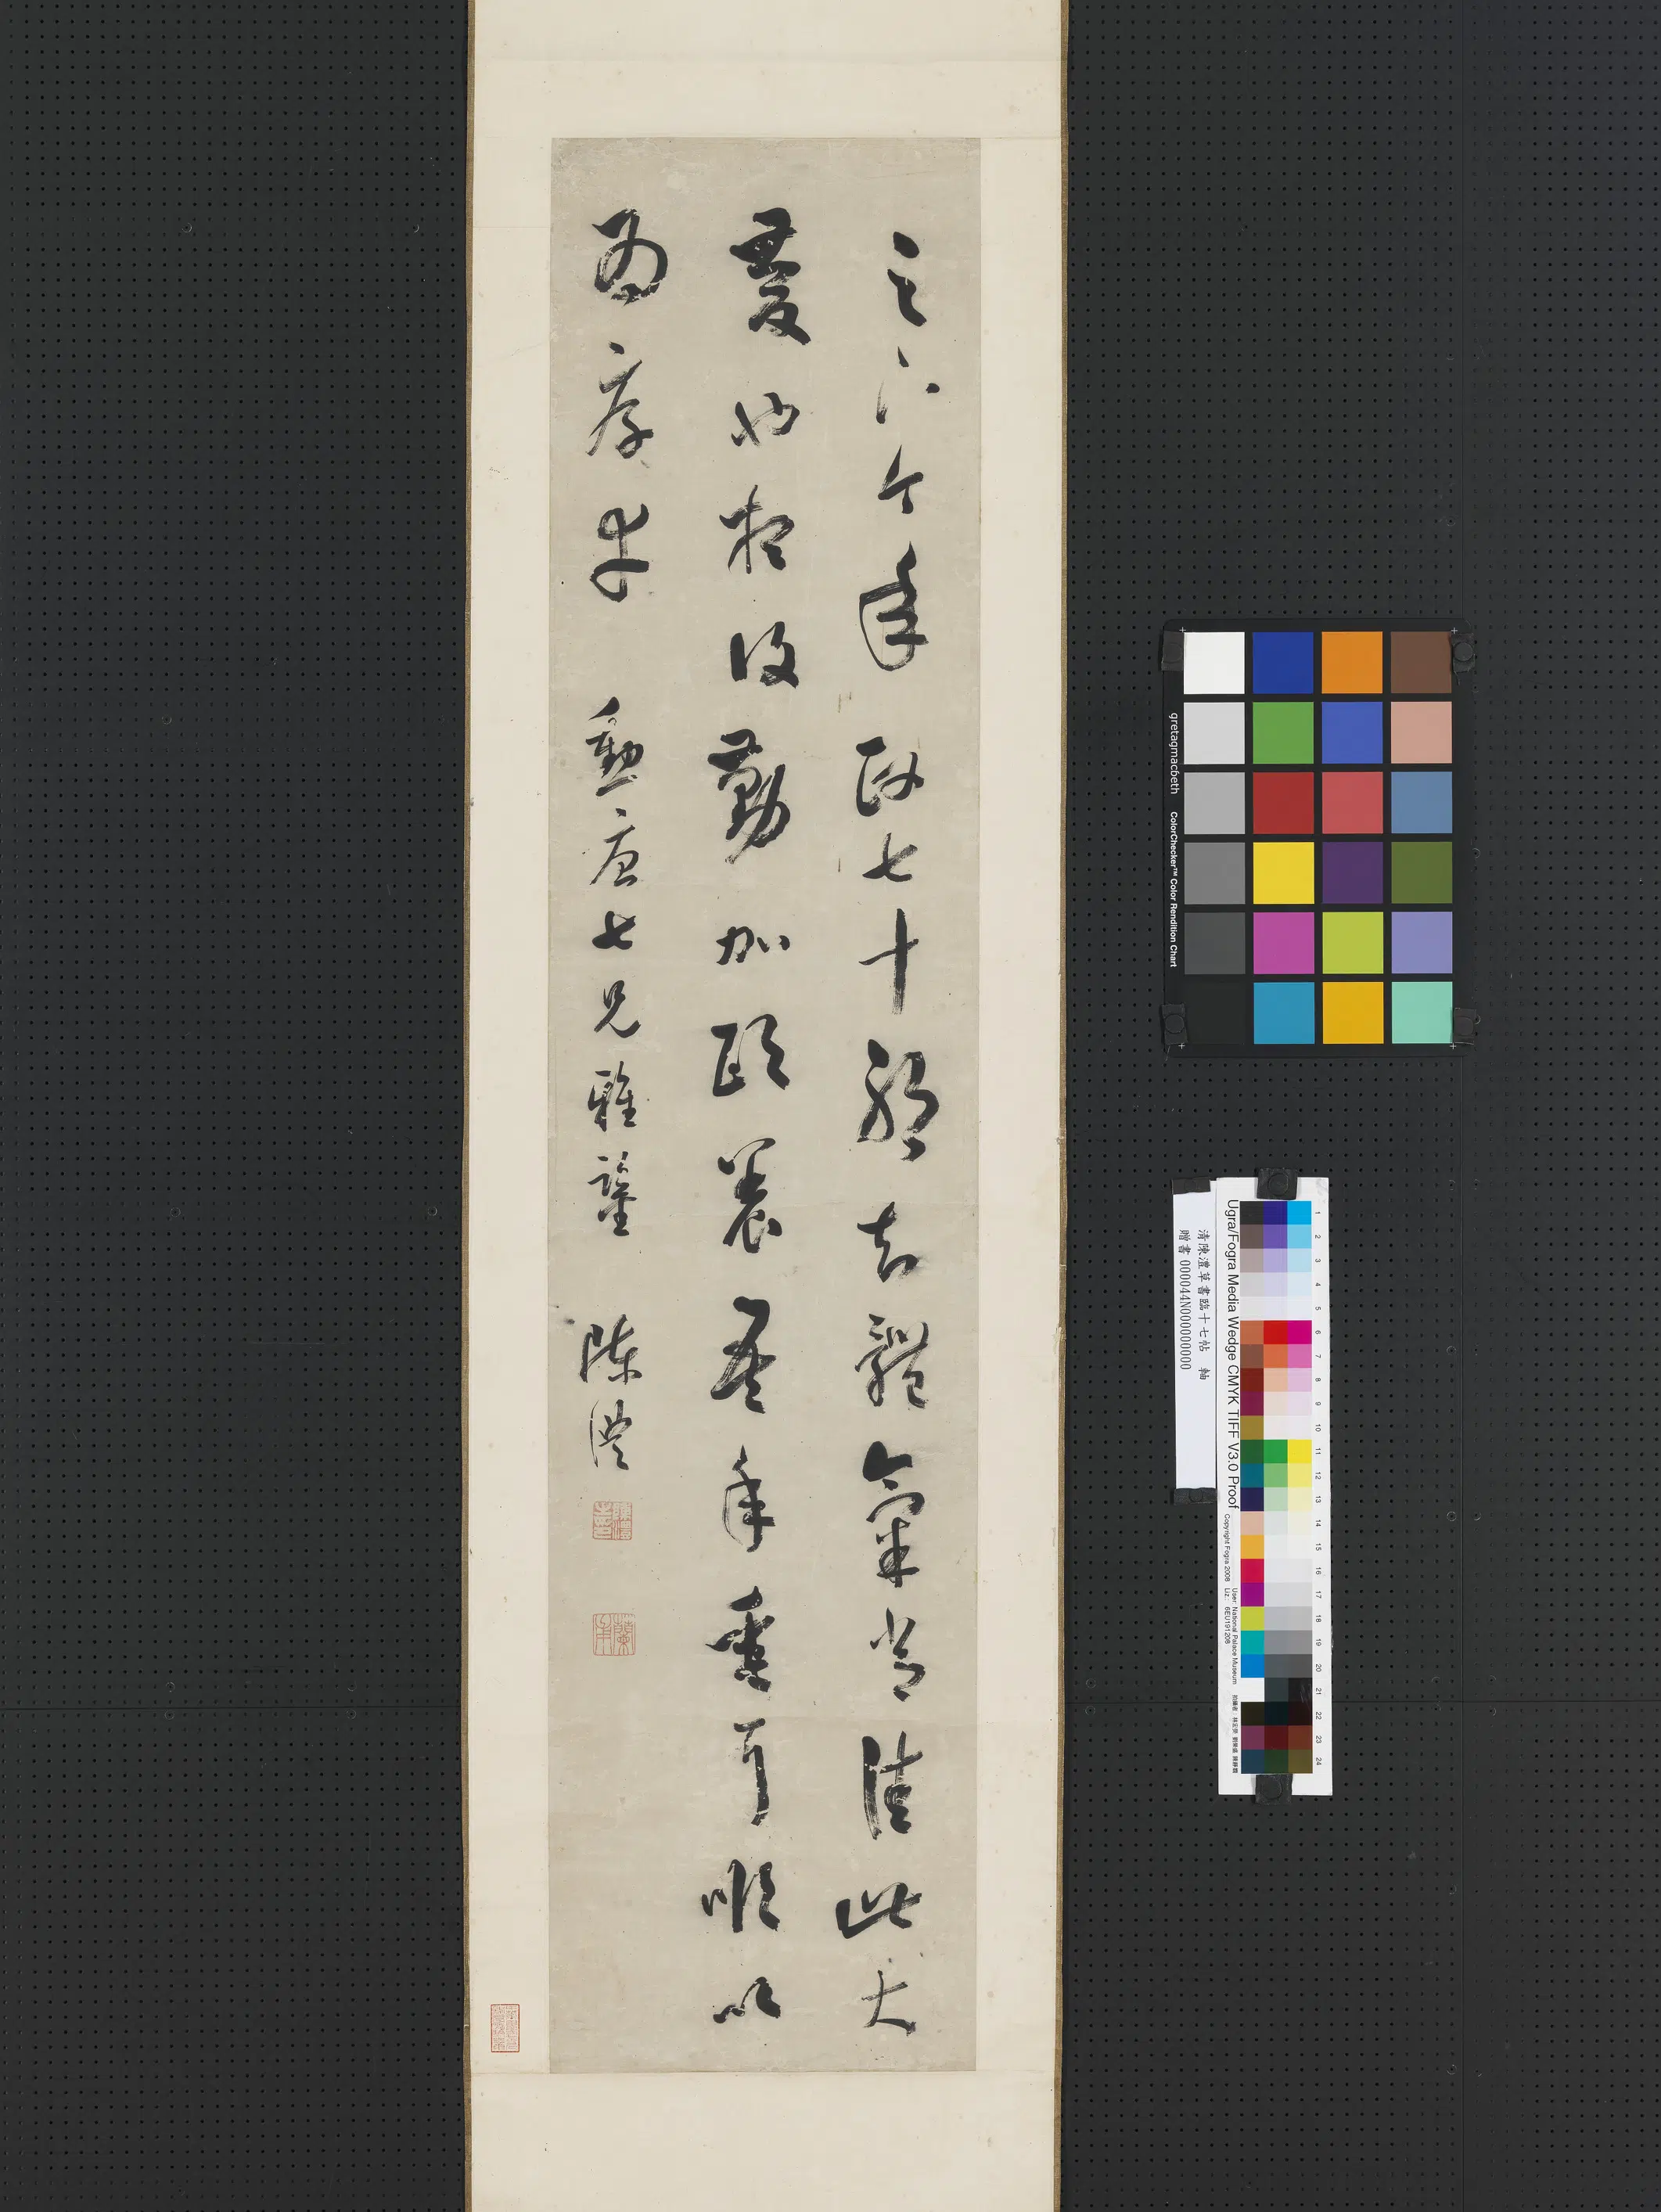 足下今年政七十耶知體氣常佳此大
慶也想復勤加頤養吾年垂耳順以
為厚幸 勳唐七兄雅鑒 陳澧
蘭甫
gretagmacbeth ColorChecker™ Color Rendition Chart
清陳澧草書臨十七帖 軸
贈書 000044N000000000
Ugra/Fogra Media Wedge CMYK TIFF V3.0 Proof
Copyright Fogra 2008 Liz.: 6EU191208 User: National Palace Museum
1
2
3
4
5
6
7
8
9
10
11
12
13
14
15
16
17
18
19
20
21
22
23
24